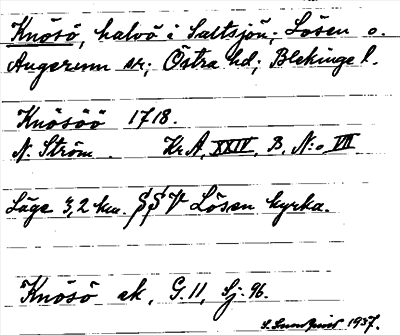 Knösö, halvö i Saltsjön; Lösen o.
Augerum sn; Östra hd; Blekinge l.
Knösöö 1718.
N. Ström. Kr.A, XXIV, B, N:o VII
Läge 3,2 km. SSV Lösen kyrka.
Knösö ek, G. 11, Sj. 96.
S. Sundqvist 1937.